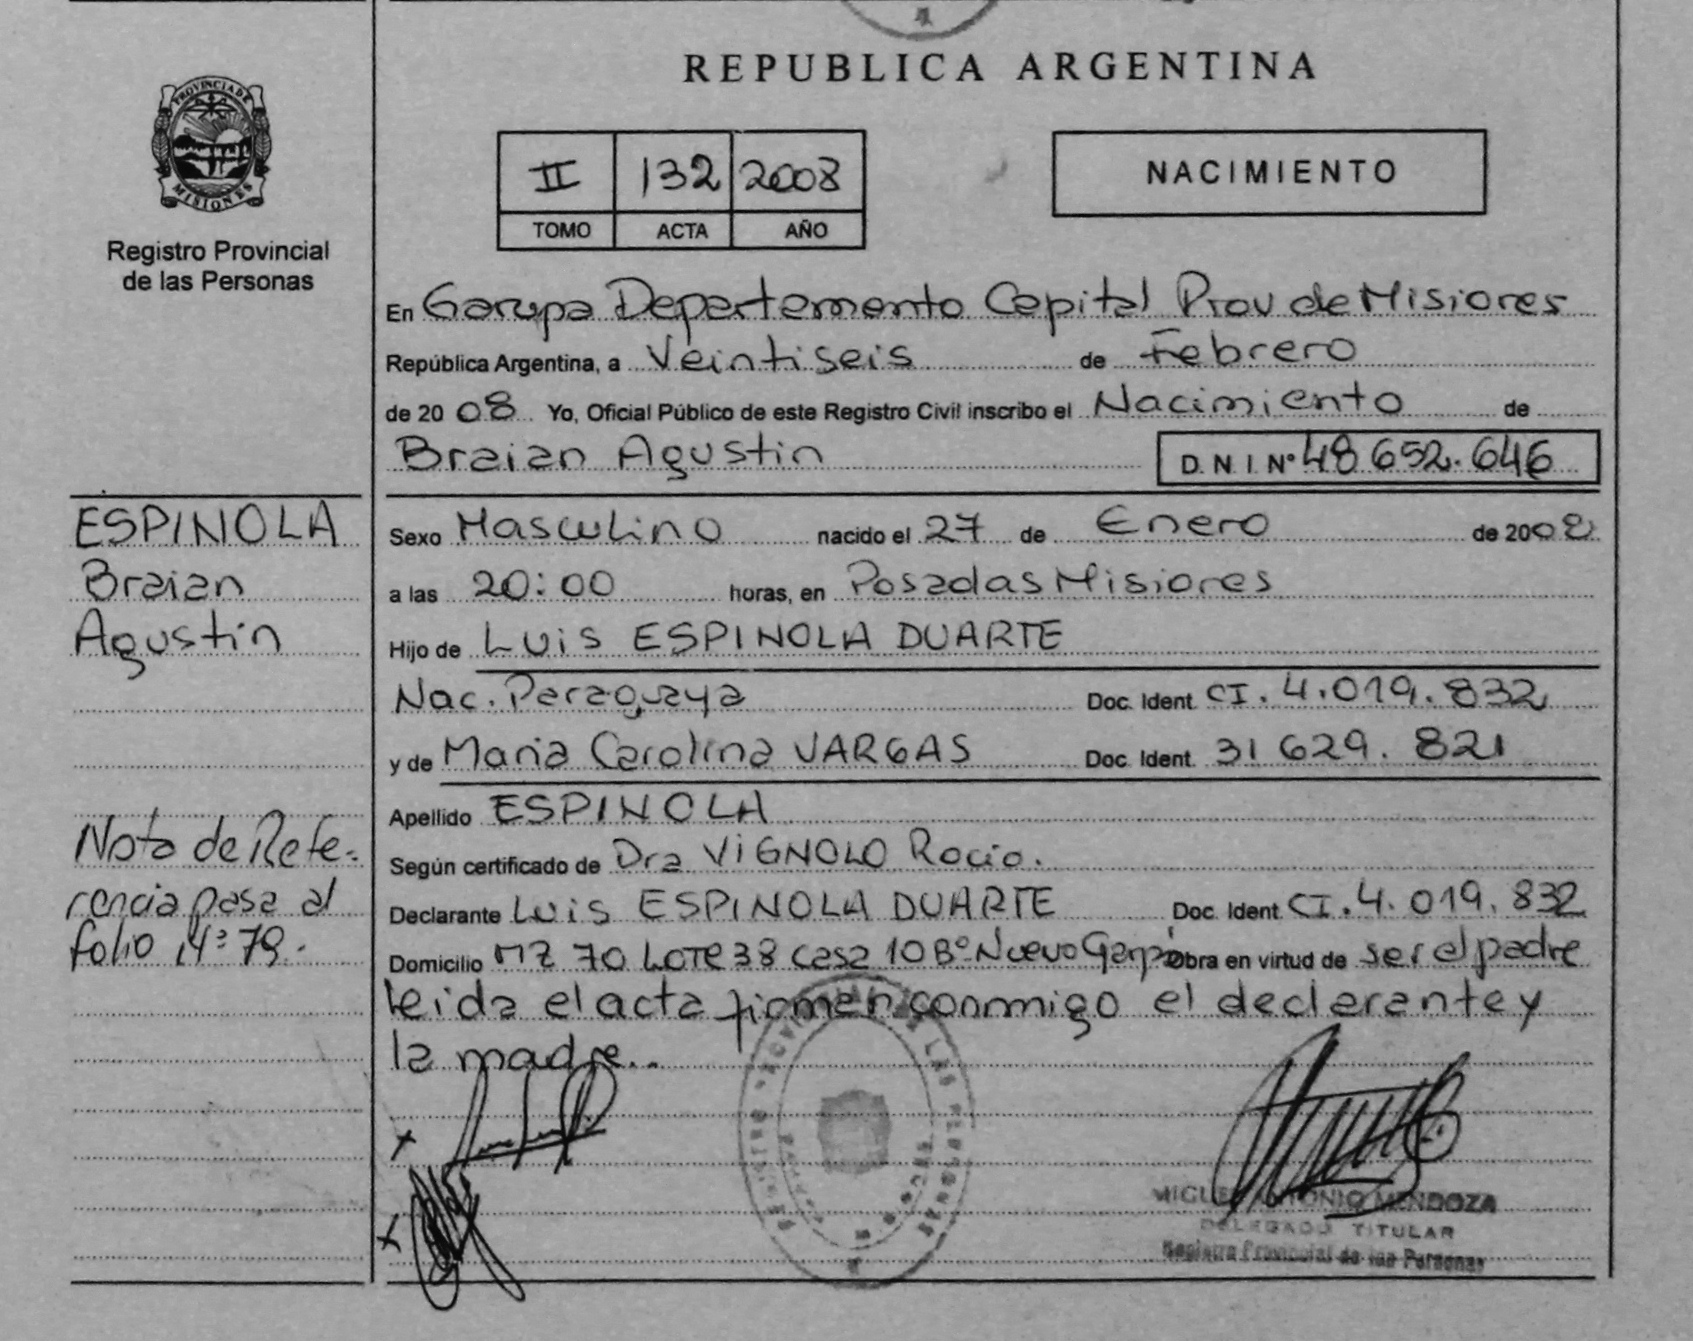 REPUBLICA ARGENTINA
PROVINCIA DE
MISIONES
Registro Provincial
de las Personas
II 132 2008
TOMO ACTA AÑO
NACIMIENTO
En Garupa Departamento Capital Prov de Misiones
República Argentina, a Veintiseis de Febrero
de 20 08 Yo, Oficial Público de este Registro Civil inscribo el Nacimiento de
Braian Agustin D.N.I. Nº 48 652.646
ESPINOLA
Braian
Agustin
Sexo Masculino nacido el 27 de Enero de 2008
a las 20:00 horas, en Posadas Misiones
Hijo de Luis ESPINOLA DUARTE
Nac. Paraguaya Doc. Ident. CI. 4.019.832
y de Maria Carolina VARGAS Doc. Ident. 31 629.821
Apellido ESPINOLA
Según certificado de Dra ViGNOLO Rocio.
Declarante Luis ESPINOLA DUARTE Doc. Ident. CI.4.019.832
Domicilio MZ 70 LOTE 38 casa 10 Bº Nuevo Garpá Obra en virtud de ser el padre
leida el acta firman conmigo el declarante y
la madre..
Nota de Refe-
rencia pasa al
folio Nº 79.
MIGUEL ANTONIO MENDOZA
DELEGADO TITULAR
Registro Provincial de las Personas